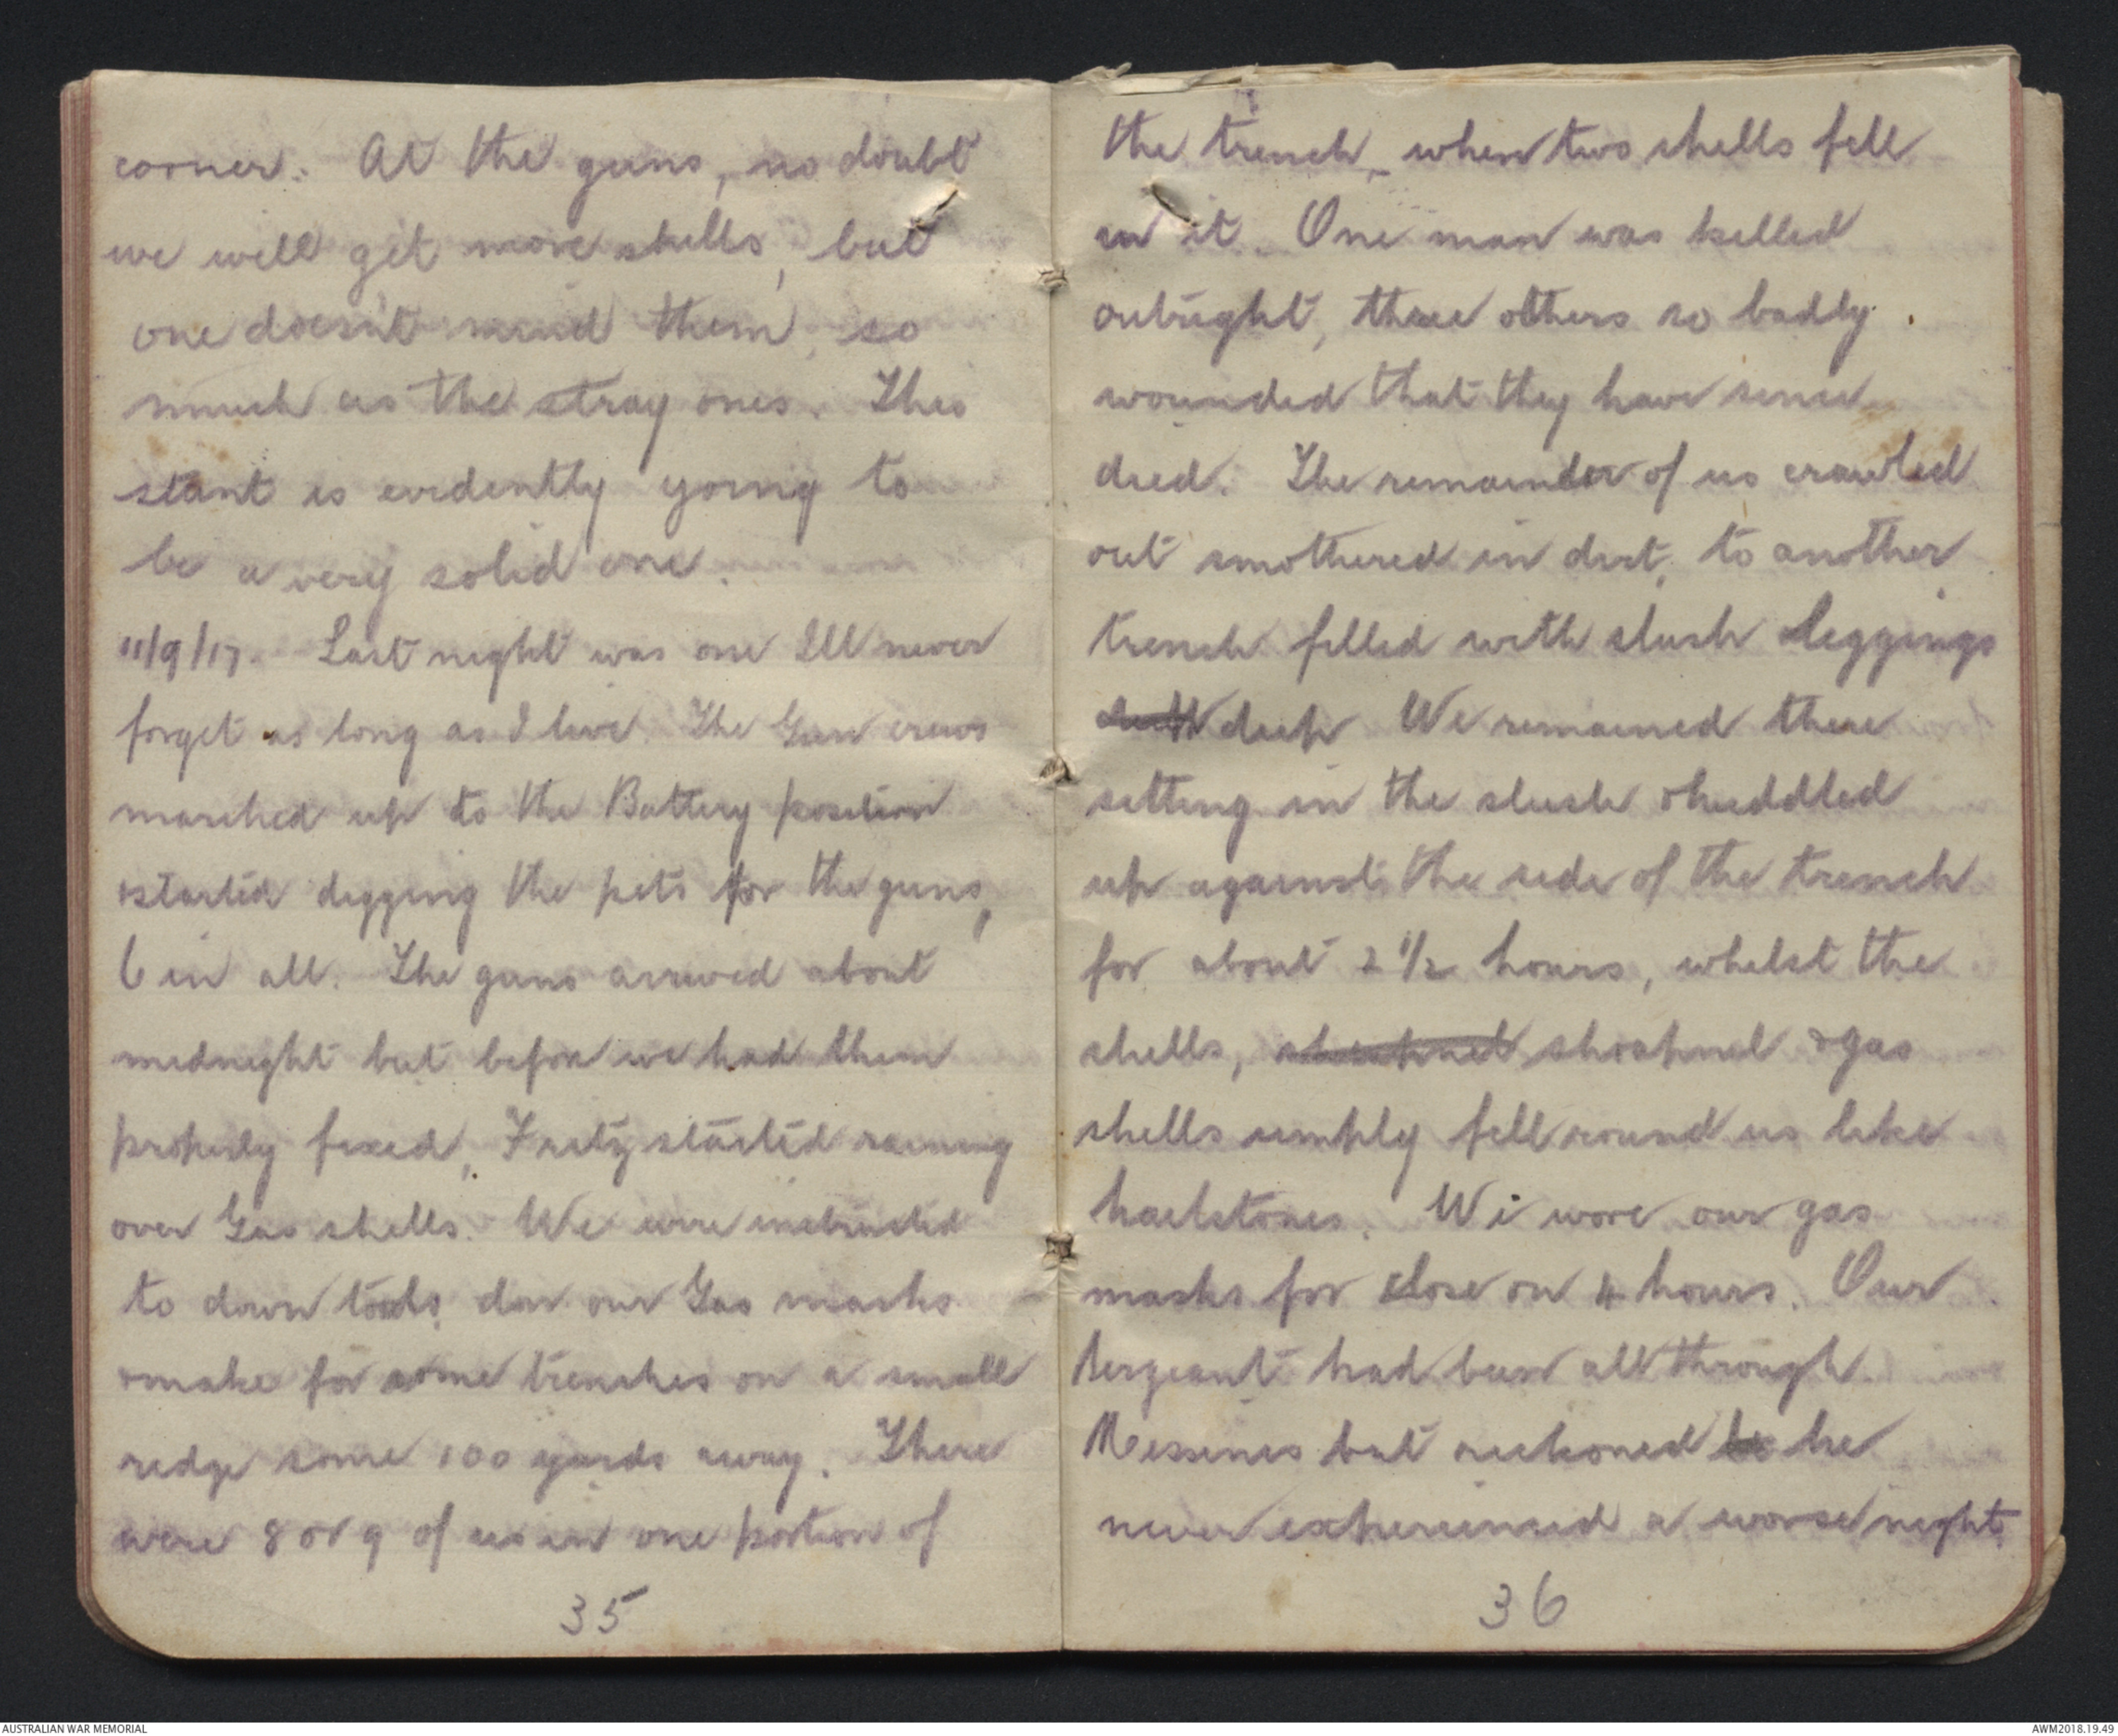 corner. At the guns, no doubt
we will get more shells, but
one doesn't mind them, so
much as the stray ones. This
stunt is evidently going to
be a very solid one.
11/9/17. Last night was one Ill never
forget as long as I live. The Gun crews
marched up to the Battery position
& started digging the pits for the guns,
6 in all. The guns arrived about
midnight but before we had them
properly fixed, Fritz started raining
over Gas shells. We were instructed
to down tools, don our Gas masks
& make for some trenches on a small
ridge some 100 yards away. There
were 8 or 9 of us in one portion of
35
the trench, when two shells fell
in it. One man was killed
outright, three others so badly
wounded that they have since
died. The remainder of us crawled
out smothered in dirt, to another
trench filled with slush leggings
deep We remained there
sitting in the slush & huddled
up against the side of the trench
for about 2 1/2 hours, whilst the
shells, shrapnel shrapnel & gas
shells simply fell round us like
hailstones. We wore our gas
masks for close on 4 hours. Our
Sergeant had been all through
Messines but reckoned he he
never experienced a worse night.
36
AUSTRALIAN WAR MEMORIAL
AWM2018.19.49